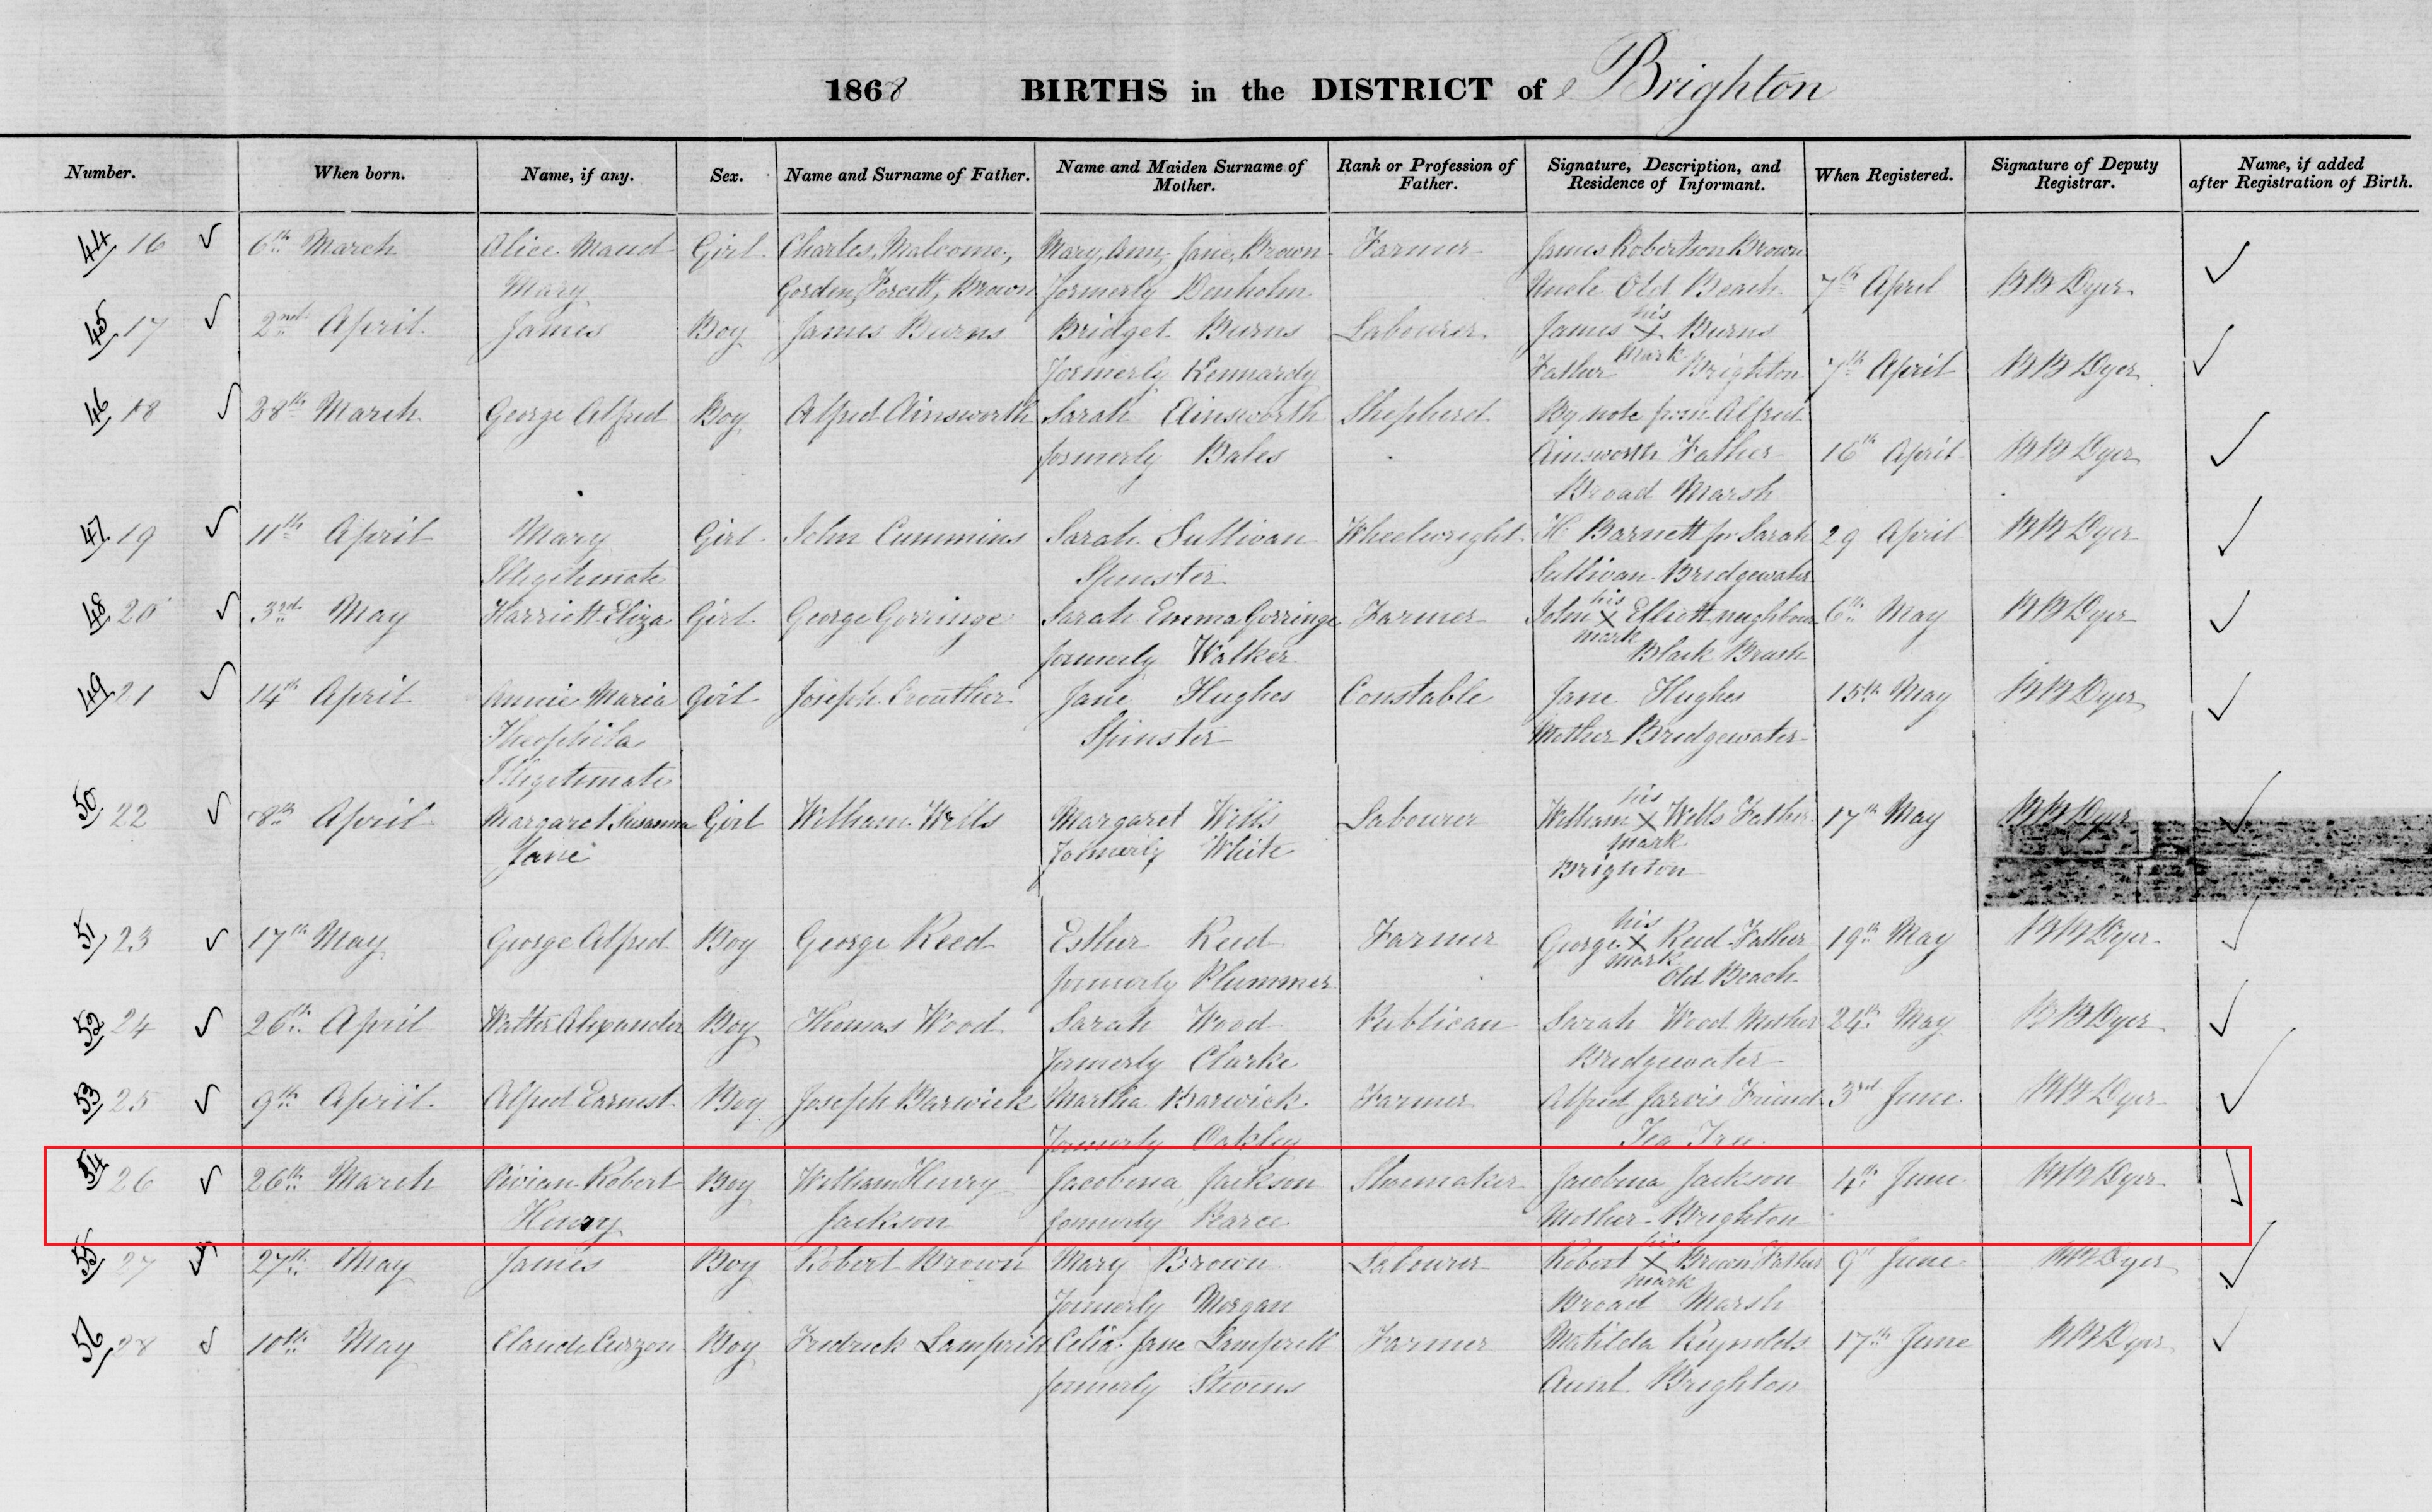 1868 BIRTHS in the DISTRICT of Brighton
Number. When born. Name, if any. Sex. Name and Surname of Father. Name and Maiden Surname of Mother. Rank or Profession of Father. Signature, Description, and Residence of Informant. When Registered. Signature of Deputy Registrar. Name, if added after Registration of Birth.
44 16 6th March Alice Maud Girl Charles, Malcome, Mary, Ann, Jane, Brown Farmer James Robertson Brown
Mary Gordon, Forcett, Brown formerly Denholm Uncle Old Beach 7th April BB Dyer
45 17 2nd April James Boy James Burns Bridget Burns Labourer James his X Burns
formerly Kennardy Father mark Brighton 7th April BB Dyer
46 18 28th March George Alfred Boy Alfred Ainsworth Sarah Ainsworth Shepherd By note from Alfred
formerly Bales Ainsworth Father 16th April BB Dyer
Broad Marsh
47 19 11th April Mary Girl John Cummins Sarah Sullivan Wheelwright H Barnett for Sarah 29 April BB Dyer
Illegitimate Spinster Sullivan Bridgewater
48 20 3rd May Harriett Eliza Girl George Gorringe Sarah Emma Gorringe Farmer John his X Elliott neighbour 6th May BB Dyer
formerly Walker mark Black Brush
49 21 14th April Annie Maria Girl Joseph Crouther Jane Hughes Constable Jane Hughes 15th May BB Dyer
Theophila Spinster Mother Bridgewater
Illegitimate
50 22 8th April Margaret Susanna Girl William Wells Margaret Wells Labourer William his X Wells Father 17th May BB Dyer
Jane formerly White mark
Brighton
51 23 17th May George Alfred Boy George Reed Esther Reed Farmer George his X Reed Father 19th May BB Dyer
formerly Plummer mark Old Beach
52 24 26th April Walter Alexander Boy Thomas Wood Sarah Wood Publican Sarah Wood Mother 24th May BB Dyer
formerly Clarke Bridgewater
53 25 9th April Alfred Earnest Boy Joseph Barwick Martha Barwick Farmer Alfred Jarvis Friend 3rd June BB Dyer
formerly Oakley Tea Tree
54 26 26th March Vivian Robert Boy William Henry Jacobina Jackson Shoemaker Jacobina Jackson 4th June BB Dyer
Henry Jackson formerly Pearce Mother Brighton
55 27 27th May James Boy Robert Brown Mary Brown Labourer Robert his X Brown Father 9th June BB Dyer
formerly Morgan mark Broad Marsh
56 28 10th May Claude Curzon Boy Fredrick Lamprell Celia Jane Lamprell Farmer Matilda Reynolds 17th June BB Dyer
formerly Stevens Aunt Brighton